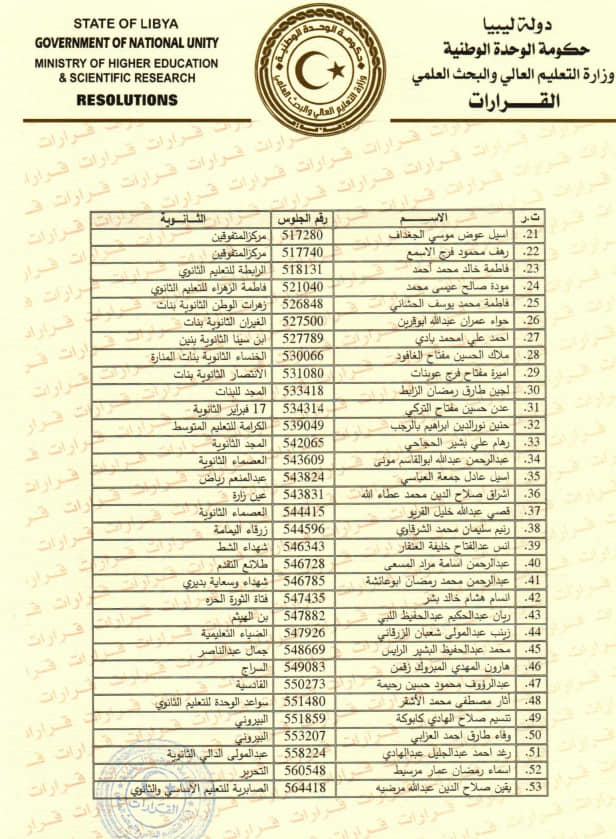 STATE OF LIBYA
GOVERNMENT OF NATIONAL UNITY
MINISTRY OF HIGHER EDUCATION
& SCIENTIFIC RESEARCH
RESOLUTIONS
دولة ليبيا
حكومة الوحدة الوطنية
وزارة التعليم العالي والبحث العلمي
القــرارات
ت.ر الاســم رقم الجلوس الثــانــوية
21. اسيل عوض موسي الجغداف 517280 مركزالمتفوقين
22. رهف محمود فرج الاسمع 517740 مركزالمتفوقين
23. فاطمة خالد محمد أحمد 518131 الرابطة للتعليم الثانوي
24. مودة صالح عيسى محمد 521040 فاطمة الزهراء للتعليم الثانوي
25. فاطمة محمد يوسف الحشاني 526848 زهرات الوطن الثانوية بنات
26. حواء عمران عبدالله ابوقرين 527500 الغيران الثانوية بنات
27. احمد علي امحمد بادي 527789 ابن سينا الثانوية بنين
28. ملاك الحسين مفتاح الغافود 530066 الخنساء الثانوية بنات المنارة
29. اميرة مفتاح فرج عوينات 531080 الانتصار الثانوية بنات
30. لجين طارق رمضان الزابط 533418 المجد للبنات
31. عدن حسين مفتاح التركي 534314 17 فبراير الثانوية
32. حنين نورالدين ابراهيم بالرجب 539049 الكرامة للتعليم المتوسط
33. رهام علي بشير الحجاجي 542065 المجد الثانوية
34. عبدالرحمن عبدالله ابوالقاسم مونى 543609 العصماء الثانوية
35. اسيل عادل جمعة العباسي 543824 عبدالمنعم رياض
36. اشراق صلاح الدين محمد عطاء الله 543831 عين زارة
37. قصي عبدالله خليل القريو 544415 العصماء الثانوية
38. رنيم سليمان محمد الشرقاوي 544596 زرقاء اليمامة
39. انس عبدالفتاح خليفة العنقار 546343 شهداء الشط
40. عبدالرحمن اسامة مراد المسعى 546728 طلائع التقدم
41. عبدالرحمن محمد رمضان ابوعائشة 546785 شهداء وسعاية بديري
42. انسام هشام خالد بشر 547435 فتاة الثورة الحره
43. ريان عبدالحكيم عبدالحفيظ اللبي 547882 بن الهيثم
44. زينب عبدالمولى شعبان الزرقاني 547926 الضياء التعليمية
45. محمد عبدالحفيظ البشير الرايس 548669 جمال عبدالناصر
46. هارون المهدي المبروك زقمن 549083 السراج
47. عبدالرؤوف محمود حسين رحيمة 550273 القادسية
48. أثار مصطفى محمد الأشقر 551480 سواعد الوحدة للتعليم الثانوي
49. تتسيم صلاح الهادي كابوكة 551859 البيروني
50. وفاء طارق احمد العزابي 553207 البيروني
51. رغد احمد عبدالجليل عبدالهادي 558224 عبدالمولى الدالي الثانوية
52. اسماء رمضان عمار مرسيط 560548 التحرير
53. يقين صلاح الدين عبدالله مرضيه 564418 الصابرية للتعليم الأساسي والثانوي
القرارات